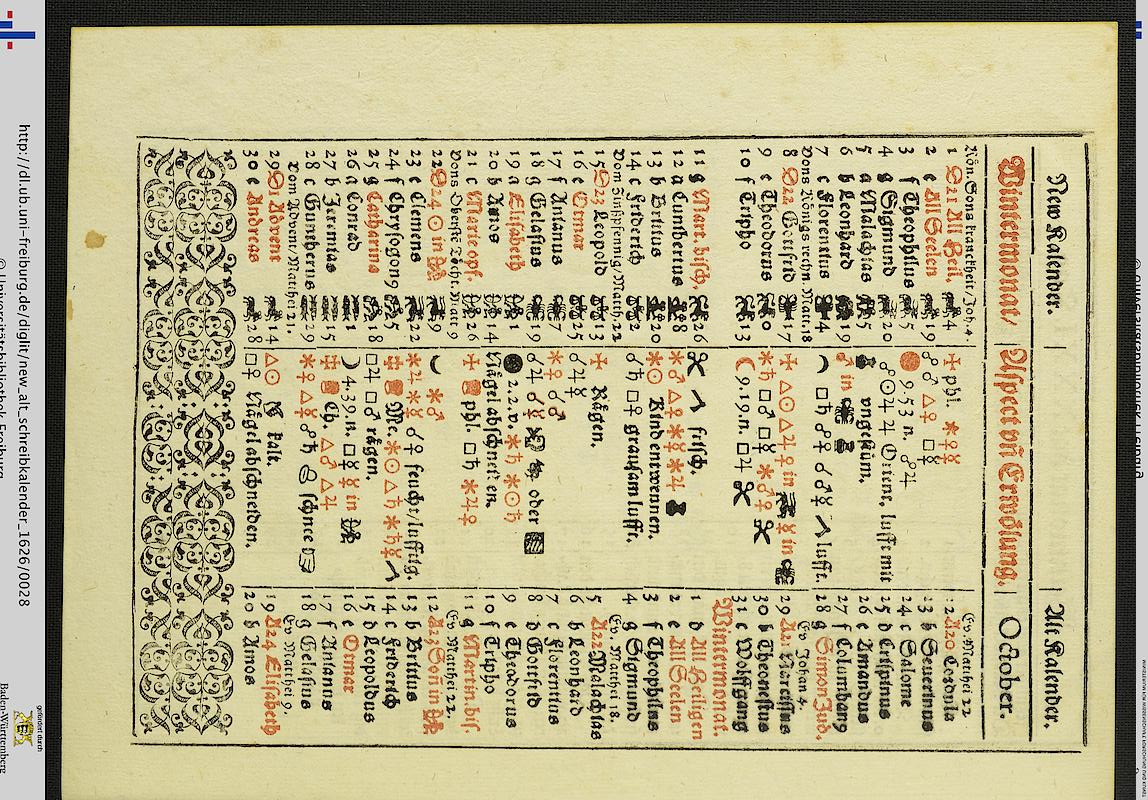 New Kalender. Alt Kalender.
Wintermonat/ Aspect vñ Erwöhlung. October.
Kön. Sons kranckheit/Joh. 4. Ev. Matthei 22
1 D21 All Heil. 4 ✠ phl. ⚹ ♀ ☿
2 e All Seelen 19 ☍ ♂ △ ♀ □ ☿
3 f Theophilus 5 9.53 n. ☌ ♃ 13 b Severinus
4 g Sigmund 20 ☍ ☉ ♃ Orient, lufft mit 24 c Salome
5 a Malachias 5 ungestüm. 25 d Crispinus
6 b Leonhard 19 ♂ in 26 e Amandus
7 c Florentius 4 □ ♄ ☍ ♀ ☌ ☿ lufft. 27 f Columbanus
Vons Königs rechn. Matt. 18 28 g Simon Jud.
8 D22 Gottfrid 17 ✠ △ ☉ △ ♃ ♀ in ☿ in 29 Narcissus
Ev Johan 4.
9 e Theodorus 0 ⚹ ♄ □ ♂ □ ☿ ⚹ ♂ ♀ 30 b Theonestus
10 f Tripho 13 ☾ 9.19.n. □ ♃ 31 c Wolffgang
Wintermonat.
11 g Mart. bisch. 26 frisch. 1 d All Heiligen
12 a Cunibertus 8 ⚹ ♂ △ ♀ ⚹ ☿ ⚹ ♃ 2 e All Seelen
13 b Brittus 20 ⚹ ☉ Kind entwennen. 3 f Theophilus
14 c Friderich 2 ☌ ♄ □ ♀ grausam lufft. 4 g Sigmund
Vom Zinßpfennig/Matth. 22 Ev Matthei 18.
15 D23 Leopold 13 ✠ Rägen. 5 A22 Malachias
16 e Otmar 25 ☌ ♃ ☿ 6 b Leonhard
17 f Anianus 7 ⚹ ♀ ☌ ♂ 7 c Florentius
18 g Gelasius 19 ☌ ♃ ☌ ☿ oder 8 d Gottfrid
19 a Elisabeth 1 2.2.v. ⚹ ♄ ⚹ ☉ ♄ 9 e Theodorus
20 b Amos 14 Nägel abschneiten. 10 f Tripho
21 c Marie opf. 26 ✠ phl. □ ♄ ⚹ ♃ ♀ 11 g Martin. bis.
Vons Oberste Toch. Matt 9 Ev Matthei 22.
22 D24 ☉ in 9 ☾ ⚹ ♂ 12 A23 Soñ in
23 e Clemens 22 ⚹ ♃ ⚹ ☿ ☌ ♀ feucht/lufftig. 13 b Brittus
24 f Chrysogon9 5 ✠ Me. ⚹ ☉ △ ♄ ⚹ ♄ ☿ 14 c Friderich
25 g Catharina 18 □ ♃ □ ♂ rägen. 15 d Leopoldus
26 a Conrad 1 ☾ 4.39.n. □ ☿ ♀ in 16 e Otmar
27 b Jeremias 15 ✠ Ch. △ ♂ △ ♃ 17 f Anianus
28 c Guntherus 29 ⚹ ♀ △ ☿ ☍ ♄ schnee 18 g Gelasius
Vom Advent/Matthei 21. Ev Matthei 9.
29 D1 Advent 14 △ ☉ kalt. 19 A24 Elisabeth
30 e Andreas 28 □ ♀ Nägel abschneiden. 20 b Amos
http://dl.ub.uni-freiburg.de/diglit/new_alt_schreibkalender_1626/0028
© Universitätsbibliothek Freiburg
gefördert durch
Baden-Württemberg